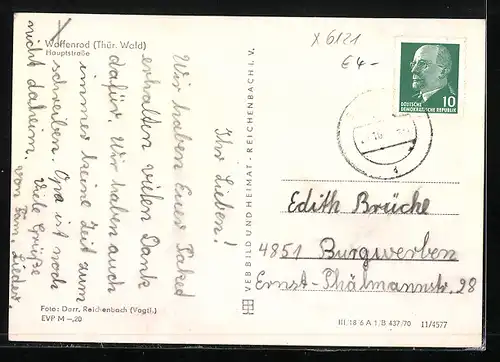 Waffenrod (Thür. Wald)
Hauptstraße
x 6121
€ 4-
DEUTSCHE
DEMOKRATISCHE REPUBLIK
10
Ihr Lieben!
Wir haben Euer Paket
erhalten vielen Dank
dafür. Wir haben auch
immer keine Zeit zum
schreiben. Opa ist noch
nicht daheim.
Viele Grüße
von Fam. Lieder
VEB BILD UND HEIMAT - REICHENBACH I. V.
Edith Brüche
4851 Burgwerben
Ernst-Thälmannstr. 28
Foto: Darr, Reichenbach (Vogtl.)
EVP M -,20
III. 18 6 A 1 B 437/70 11/4577